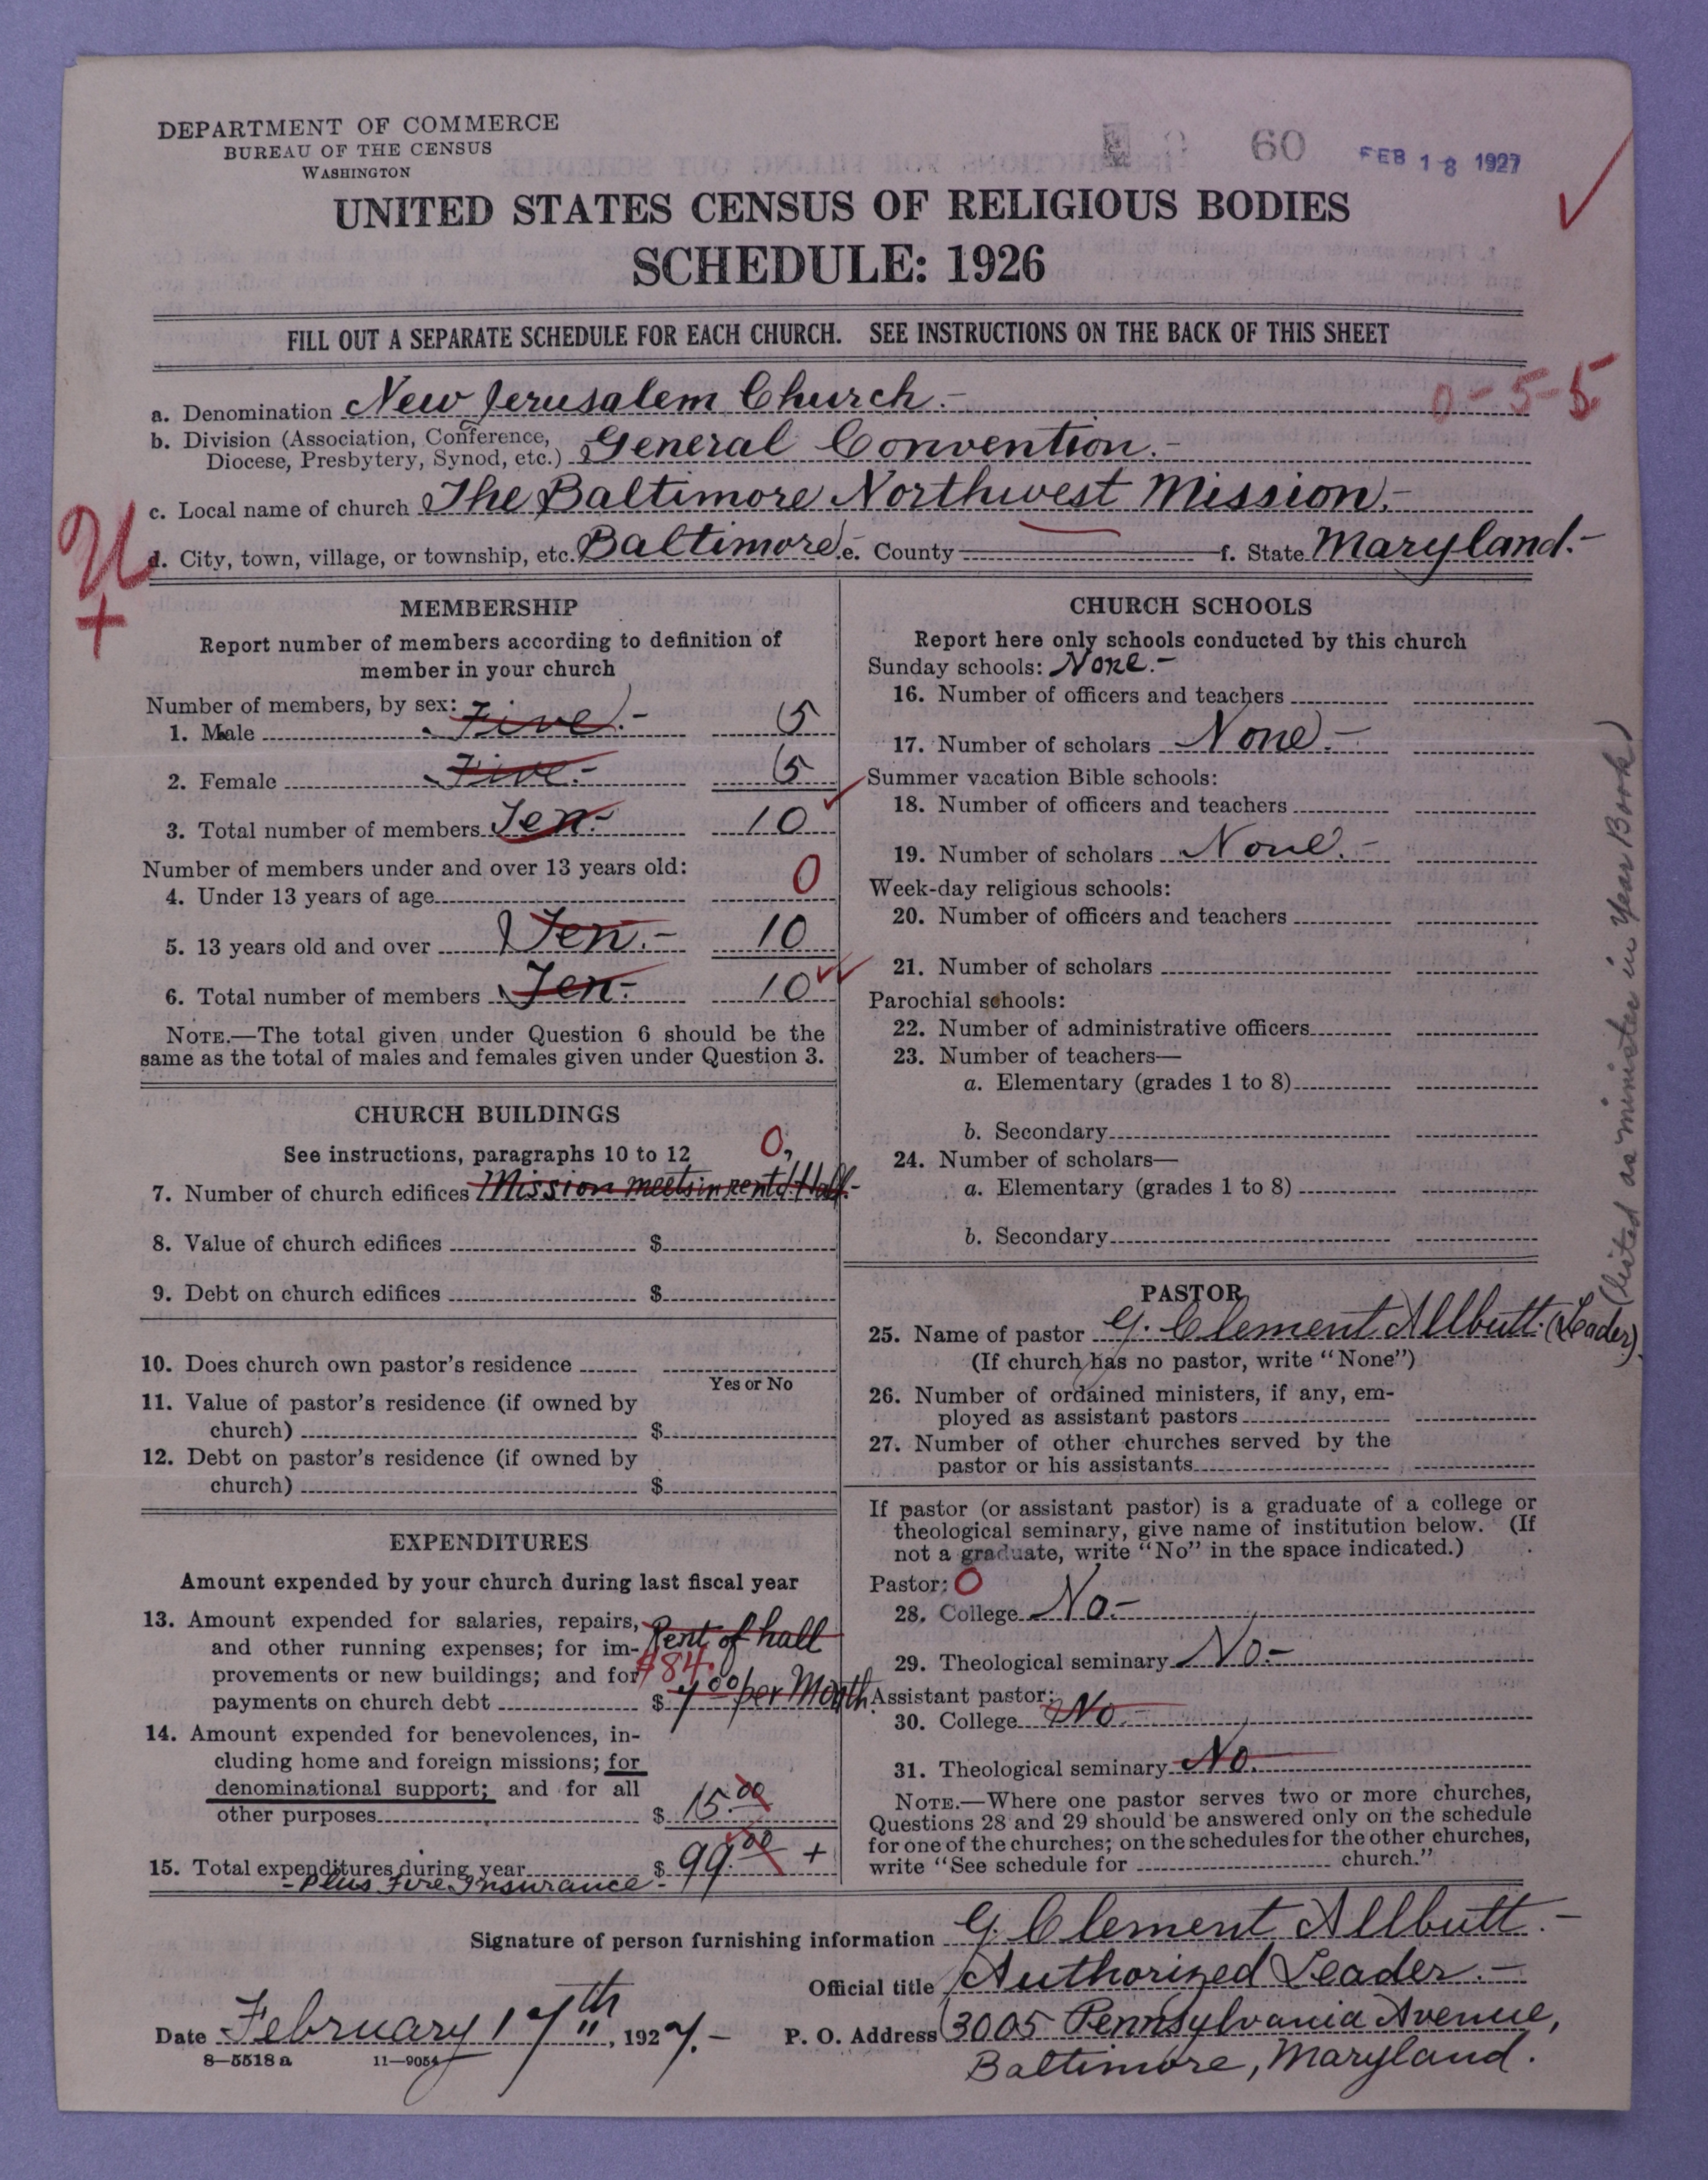 DEPARTMENT OF COMMERCE
BUREAU OF THE CENSUS
WASHINGTON
60
FEB 18 1927
UNITED STATES CENSUS OF RELIGIOUS BODIES
SCHEDULE: 1926
FILL OUT A SEPARATE SCHEDULE FOR EACH CHURCH. SEE INSTRUCTIONS ON THE BACK OF THIS SHEET
0-5-5
a. Denomination New Jerusalem Church.-
b. Division (Association, Conference,
Diocese, Presbytery, Synod, etc.) General Convention.-
c. Local name of church The Baltimore Northwest Mission.-
d. City, town, village, or township, etc. Baltimore.- e. County f. State Maryland.-
MEMBERSHIP
Report number of members according to definition of
member in your church
Number of members, by sex:
1. Male Five.- 5
2. Female Five.- 5
3. Total number of members Ten.- 10
Number of members under and over 13 years old:
4. Under 13 years of age 0
5. 13 years old and over Ten.- 10
6. Total number of members Ten.- 10
NOTE.—The total given under Question 6 should be the
same as the total of males and females given under Question 3.
CHURCH BUILDINGS
See instructions, paragraphs 10 to 12 0,
7. Number of church edifices Mission meets in rent'd Hall.-
8. Value of church edifices $
9. Debt on church edifices $
10. Does church own pastor's residence
Yes or No
11. Value of pastor's residence (if owned by
church) $
12. Debt on pastor's residence (if owned by
church) $
EXPENDITURES
Amount expended by your church during last fiscal year
13. Amount expended for salaries, repairs,
and other running expenses; for im-
provements or new buildings; and for
payments on church debt $
Rent of hall
$84.
7.00 per Month.
14. Amount expended for benevolences, in-
cluding home and foreign missions; for
denominational support; and for all
other purposes $ 15.00
15. Total expenditures during year $ 99.00 +
- Plus Fire Insurance -
CHURCH SCHOOLS
Report here only schools conducted by this church
Sunday schools: None.-
16. Number of officers and teachers
17. Number of scholars None.-
Summer vacation Bible schools:
18. Number of officers and teachers
19. Number of scholars None.-
Week-day religious schools:
20. Number of officers and teachers
21. Number of scholars
Parochial schools:
22. Number of administrative officers
23. Number of teachers—
a. Elementary (grades 1 to 8)
b. Secondary
24. Number of scholars—
a. Elementary (grades 1 to 8)
b. Secondary
PASTOR
25. Name of pastor G. Clement Allbutt. (Leader)
(listed as minister in Year Book)
(If church has no pastor, write "None")
26. Number of ordained ministers, if any, em-
ployed as assistant pastors
27. Number of other churches served by the
pastor or his assistants
If pastor (or assistant pastor) is a graduate of a college or
theological seminary, give name of institution below. (If
not a graduate, write "No" in the space indicated.)
Pastor: 0
28. College No.-
29. Theological seminary No.-
Assistant pastor:
30. College No.-
31. Theological seminary No.-
NOTE.—Where one pastor serves two or more churches,
Questions 28 and 29 should be answered only on the schedule
for one of the churches; on the schedules for the other churches,
write "See schedule for church."
Signature of person furnishing information G. Clement Allbutt.-
Official title Authorized Leader.-
Date February 17th, 1927.- P. O. Address 3005 Pennsylvania Avenue,
Baltimore, Maryland.
8—5518 a 11—9054